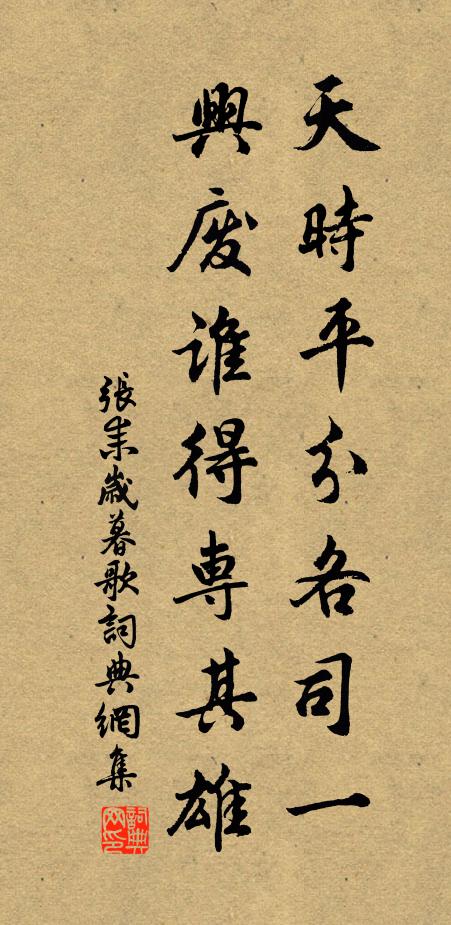 天時平分各司一
興废誰得専其雄
張耒歲暮歌詞典網集
詞典
网印